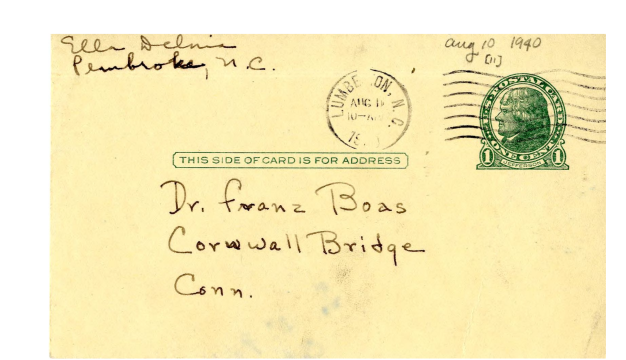 Ella Deloria
Pembroke, N.C.
Aug 10 1940
[11]
LUMBERTON, N.C.
AUG 1
10-AM
19
U.S. POSTAL CARD
ONE CENT
1 JEFFERSON 1
THIS SIDE OF CARD IS FOR ADDRESS
Dr. Franz Boas
Cornwall Bridge
Conn.